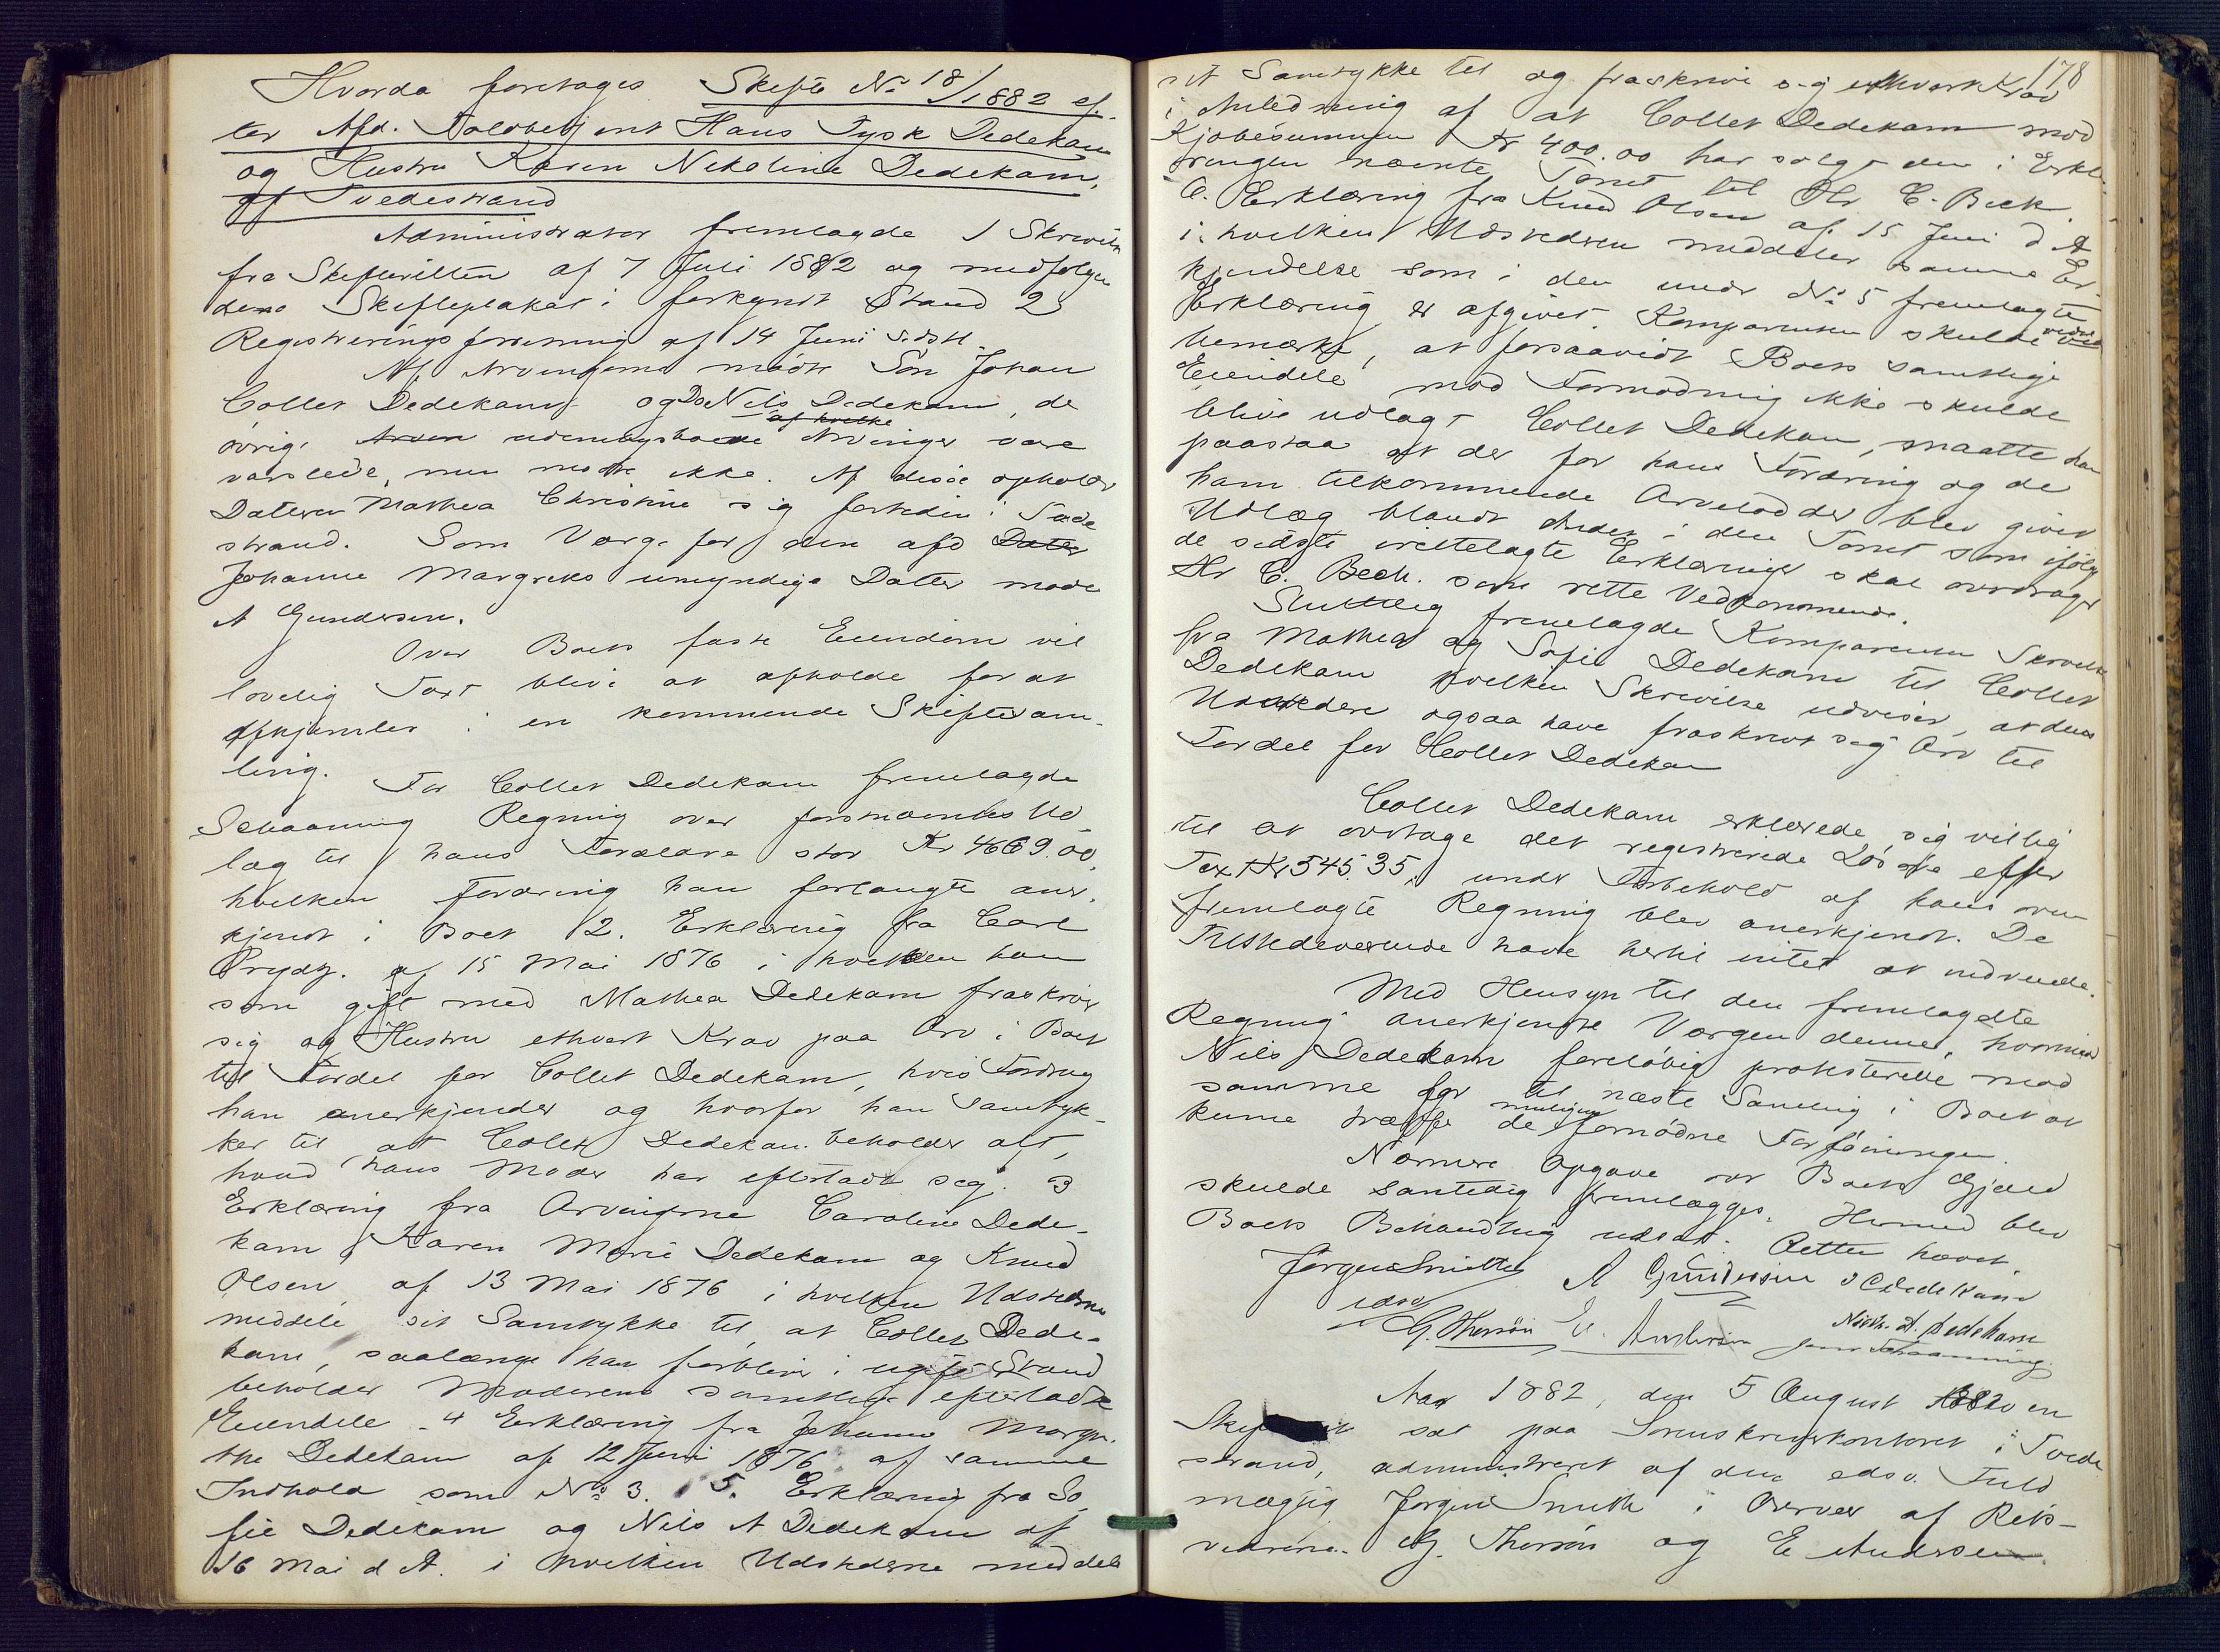 Hvorda foretoges Skifte No 18/1882 ef-
ter Afd. Toldbetjent Hans Tysk Dedekam
og Hustru Karen Nikoline Dedekam,
af Tvedestrand
Administrator fremlagde 1 Skrivelse
fra Skifteretten af 7 Juli 1882 og medfølgen
dens Skifteplakat i forkyndt Stand 2
Registreringsforretning af 14 Juni sidstl.
Af Arvingerne mødte Søn Johan
Collet Dedekam og Do Nils Dedekam, de
øvrige udenbysboende af hvilke Arvinger vare
varslede, men mødte ikke. Af disse opholder
Dateren Mathea Christine sig fortiden i Tvede
strand. Som Værge for den afd Datter
Johanne Margrethes umyndige Datter møde
A Gundersen.
Over Boets faste Eiendom vil
lovelig Taxt blive at afholde for at
afhjemles i en kommende Skiftesam-
ling.
For Collet Dedekam fremlagde
Schaanning Regning over førstnævntes Ud-
læg til hans Forældre stor Kr 4669.00,
hvilken Fordring han forlangte aner-
kjendt i Boet 2. Erklæring fra Carl
Prydz. af 15 Mai 1876 i hvilken han
som gift med Mathea Dedekam fraskriver
sig og Hustru ethvert Krav paa Arv i Boet
til Fordel for Collet Dedekam, hvis Fordring
han anerkjender og hvorfor han samtyk-
ker til at Collet Dedekam beholder alt,
hvad hans Moder har efterladt sig. 3
Erklæring fra Arvingerne Caroline Dede-
kam, Karen Marie Dedekam og Knud
Olsen af 13 Mai 1876 i hvilken Udstederne
meddele sit Samtykke til at Collet Dede-
kam, saalænge han forbliver i ugift Stand
beholder Moderens samtlige efterladte
Eiendele - 4 Erklæring fra Johanne Margre-
the Dedekam af 12 Juni 1876 af samme
Indhold som No 3. 5. Erklæring fra So-
fie Dedekam og Nils A Dedekam af
16 Mai d A. i hvilken Udstederne meddele
178
sit Samtykke til og fraskrive sig ethvert Krav
i Anledning af at Collet Dedekam mod
Kjøbesummen Kr 400.00 har solgt den i Erklæ-
ringen nævnte Tomt til Hr. C. Beck.
6. Erklæring fra Knud Olsen af 15 Juni d A
i hvilken Udstederen meddeler samme Er-
kjendelse som i den under No 5 fremlagte
Erklæring er afgivet. Komparenten skulde
bemærke, at forsaavidt Boets samtlige
Eiendele mod Formodning ikke skulde
blive udlagt Collet Dedekam, maatte han
paastaa at der for hans Fordring og de
ham tilkommende Arvelodder blev givet
Udlæg blandt Andet i den Tomt som ifølge
de sidste irettelagte Erklæringer skal overdrages
Hr C. Beck. som rette Vedkommende.
Sluttelig fremlagde Komparenten Skrivelse
fra Mathea og Sofie Dedekam til Collet
Dedekam hvilken Skrivelse udviser, at dens
Udstedere ogsaa have fraskrevet sig Arv til
Fordel for Collet Dedekam
Collet Dedekam erklærede sig villig
til at overtage det registrerede Løsøre efter
Taxt Kr 545.35, under Forbehold af hans oven
fremlagte Regning blev anerkjendt. De
Tilstedeværende havde hertil intet at indvende.
Med Hensyn til den fremlagdte
Regning anerkjendte Værgen denne, hvorimod
Nils Dedekam foreløbig protesterede mod
samme for til næste Samling i Boet at
kunne træffe de muligens fornødne Forføininger.
Nærmere Opgave over Boets Gjæld
skulde samtidig fremlægges. Hermed blev
Boets Behandling udsat. Retten hævet.
Jørgen Smith A Gundersen J C Dedekam
edsv
G. Thorsøn E. Andersen Nicth. A. Dedekam
Jens Schaanning
Aar 1882, den 5 August blev en
Skifteret sat paa Sorenskriverkontoret i Tvede
strand, administreret af den edsv. Fuld
mægtig Jørgen Smith i Overvær af Rets-
vidnerne G. Thorsøn og E Andersen